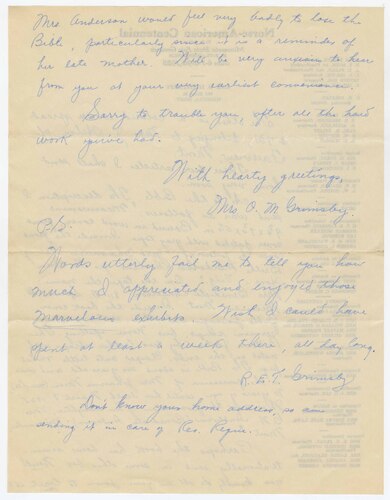 Mrs Anderson would feel very badly to lose the
Bible, particularly since it is a reminder of
her late mother. Will be very anxious to hear
from you at your very earliest convenience.
Sorry to trouble you, after all the hard
work you've had.
With hearty greetings,
Mrs O. M. Grimsby.
P/S:
Words utterly fail me to tell you how
much I appreciated and enjoyed those
marvelous exhibits. Wish I could have
spent at least a week there, all day long.
Grimsby
Don't know your home address, so am
sending it in care of Res.
Norse-American Centennial